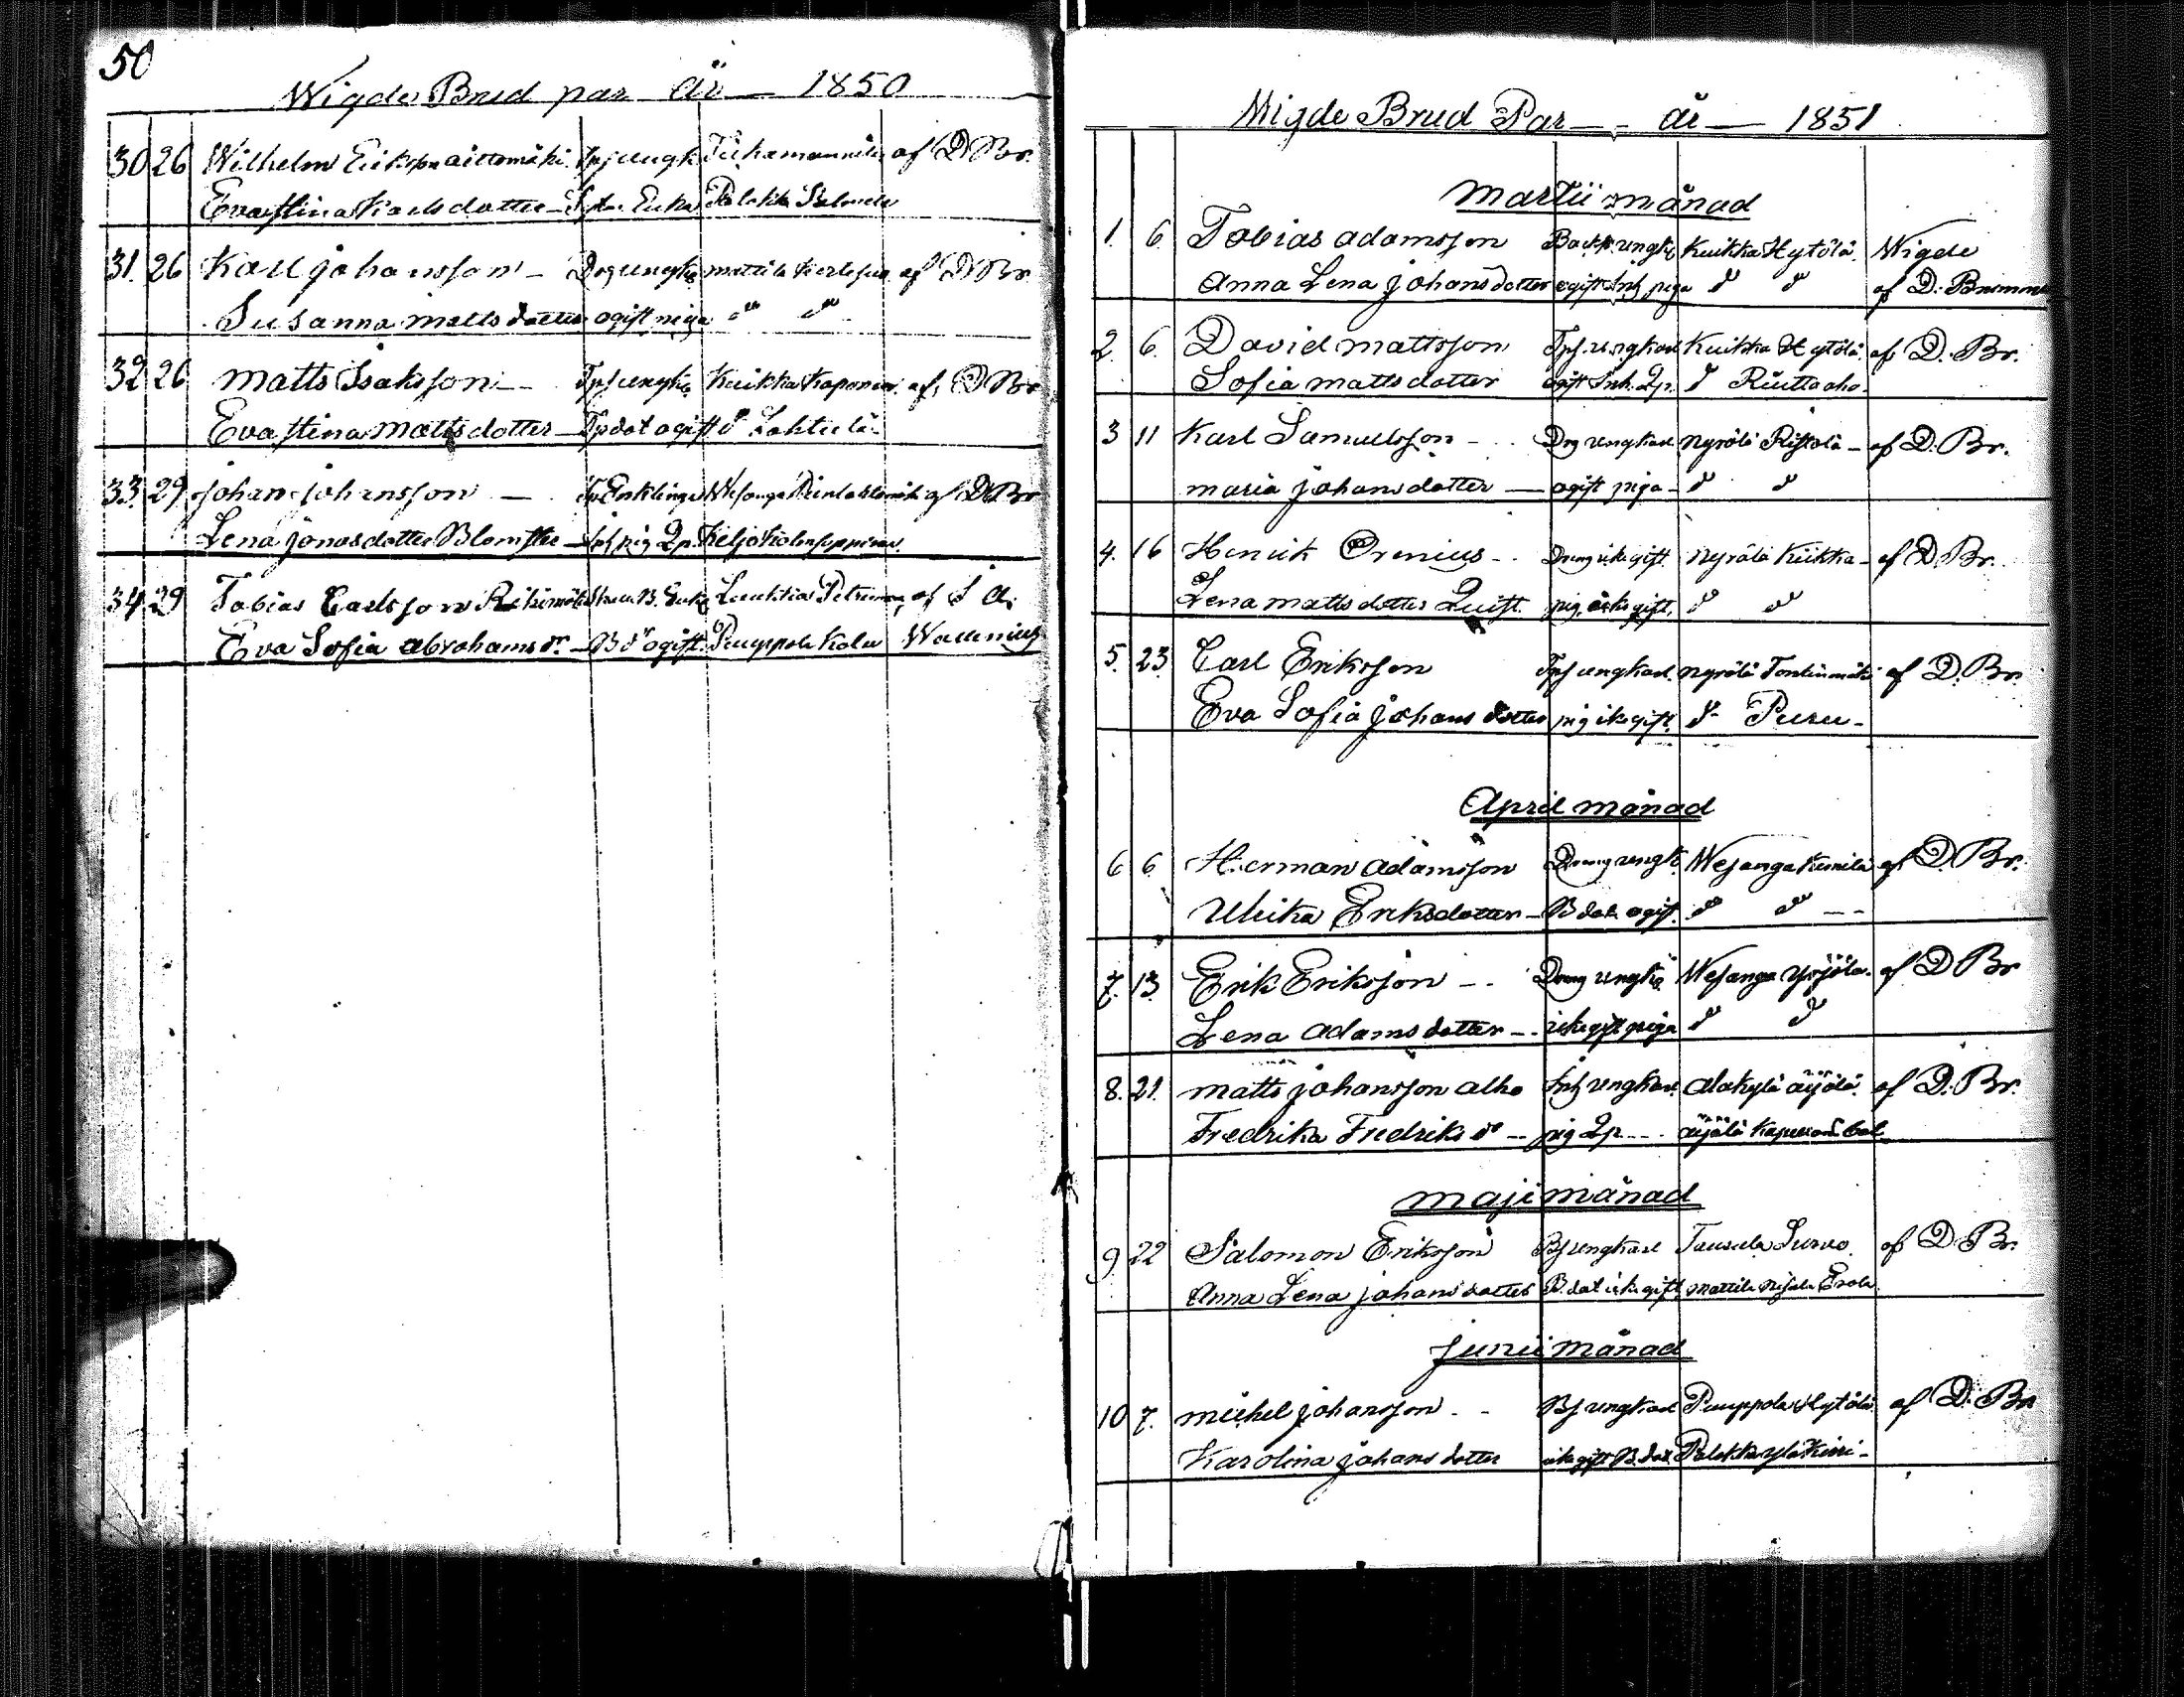 50
Wigde Brud par år — 1850
30 26 Wilhelm Eriksson aittomäki Tpf ungk Tiihamannila af D Br.
Evastina Karlsdotter — Enka Palokka
31. 26 Karl johansson — Drg ungka mattila af D Br
Susanna matts dotter ogift piga d d
32 26 matts Isaksson — Tpf ungka Kuikka Haponen af D Br
Evastina matts dotter — Tp dot ogift d Lahtela
33. 29 johan johansson — Enklinge Wesanga af D Br
Lena jonasdotter Blomster — pig Qp. Keljo
34 29 Tobias Carlsson B. Enkl Petruma af S A.
Eva Sofia abrahams dr. — B dr ogift Puuppola Kalu Wadenius
Wigde Brud Par — år — 1851
Martii månad
1. 6. Tobias adamsson Backst. ungka Kuikka Hytölä Wigde
Anna Lena johans dotter ogift Inh piga d d af D. Brumme
2. 6. David mattsson Tpf. ungkarl Kuikka Hytölä af D. Br.
Sofia matts dotter ogift Inh. Qp. d Riuttaaho.
3 11 Karl Samuelsson — Drg ungkarl nyrölä Ristola — af D. Br.
maria johans dotter — ogift piga — d d
4. 16 Henrik Grenius — Dreng icke gift nyrölä Kiikka — af D Br.
Lena matts dotter Quist. pig. icke gift. d d
5. 23. Carl Eriksson Tpf ungkarl. nyrölä af D. Br
Eva Sofia johans dotter pig icke gift. d Puru —
April månad
6 6 Herman adamsson Dreng ungk. Wesanga af D. Br.
Ulrika Eriksdotter — B dot ogift. d d — —
7. 13. Erik Eriksson — Dreng ungka Wesanga Yrjölä. af D Br
Lena adams dotter — icke gift piga d d
8. 21. matts johansson alho Inh ungkarl. alakylä äijälä. af D. Br.
Fredrika Fredriks dr — pig Qp — äijälä
maji månad
9 22 Salomon Eriksson Bf ungkarl Taurula Survo. af D. Br.
Anna Lena johans dotter B. dot icke gift mattila Erola
junii månad
10 7. michel johansson — Bf ungkarl Puuppola Hytölä af D. Br
Karolina johans dotter icke gift B. dot. Palokka ylä Kirri —